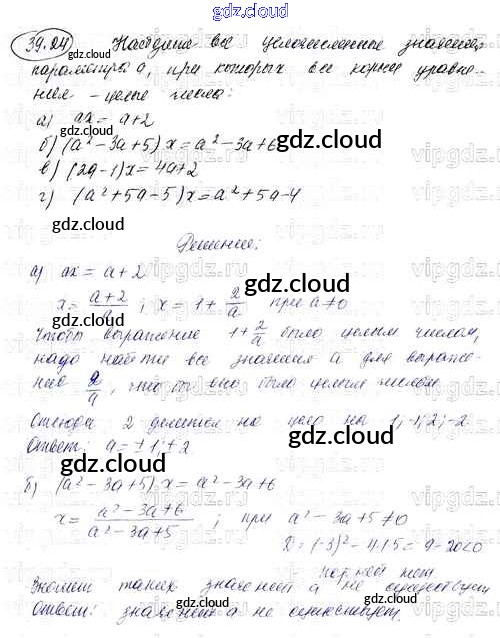 gdz.cloud
39.24 Найдите все целочисленные значения
параметра а, при которых все корни уравне-
ния - целые числа:
а) ax = a+2
б) (a² - 3a + 5) x = a² - 3a + 6
в) (2a - 1)x = 4a + 2
г) (a² + 5a - 5) x = a² + 5a - 4
gdz.cloud
Решение:
а) ax = a + 2
x = a+2 ; x = 1 + 2/a при a ≠ 0
Чтобы выражение 1 + 2/a было целым числом,
надо найти все значения а для выраже-
ния 2/a, чтобы оно было целым числом
Отсюда 2 делится на цело на 1; -1; 2; -2
Ответ: a = ±1; ±2
gdz.cloud
б) (a² - 3a + 5) x = a² - 3a + 6
x = a² - 3a + 6 / a² - 3a + 5 ; при a² - 3a + 5 ≠ 0
D = (-3)² - 4·1·5 = 9 - 20 < 0
корней нет
Значит таких значений а не существует
Ответ: значений а не существует.
gdz.cloud